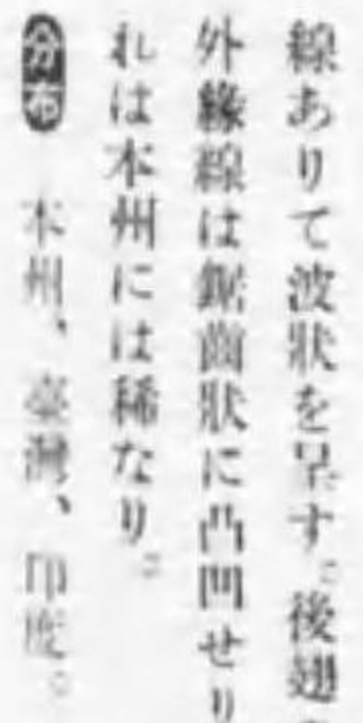 線ありて波狀を呈す。後翅
外緣線は鋸齒狀に凸凹せり
れは本州には稀なり。
分布 本州、臺灣、印度。